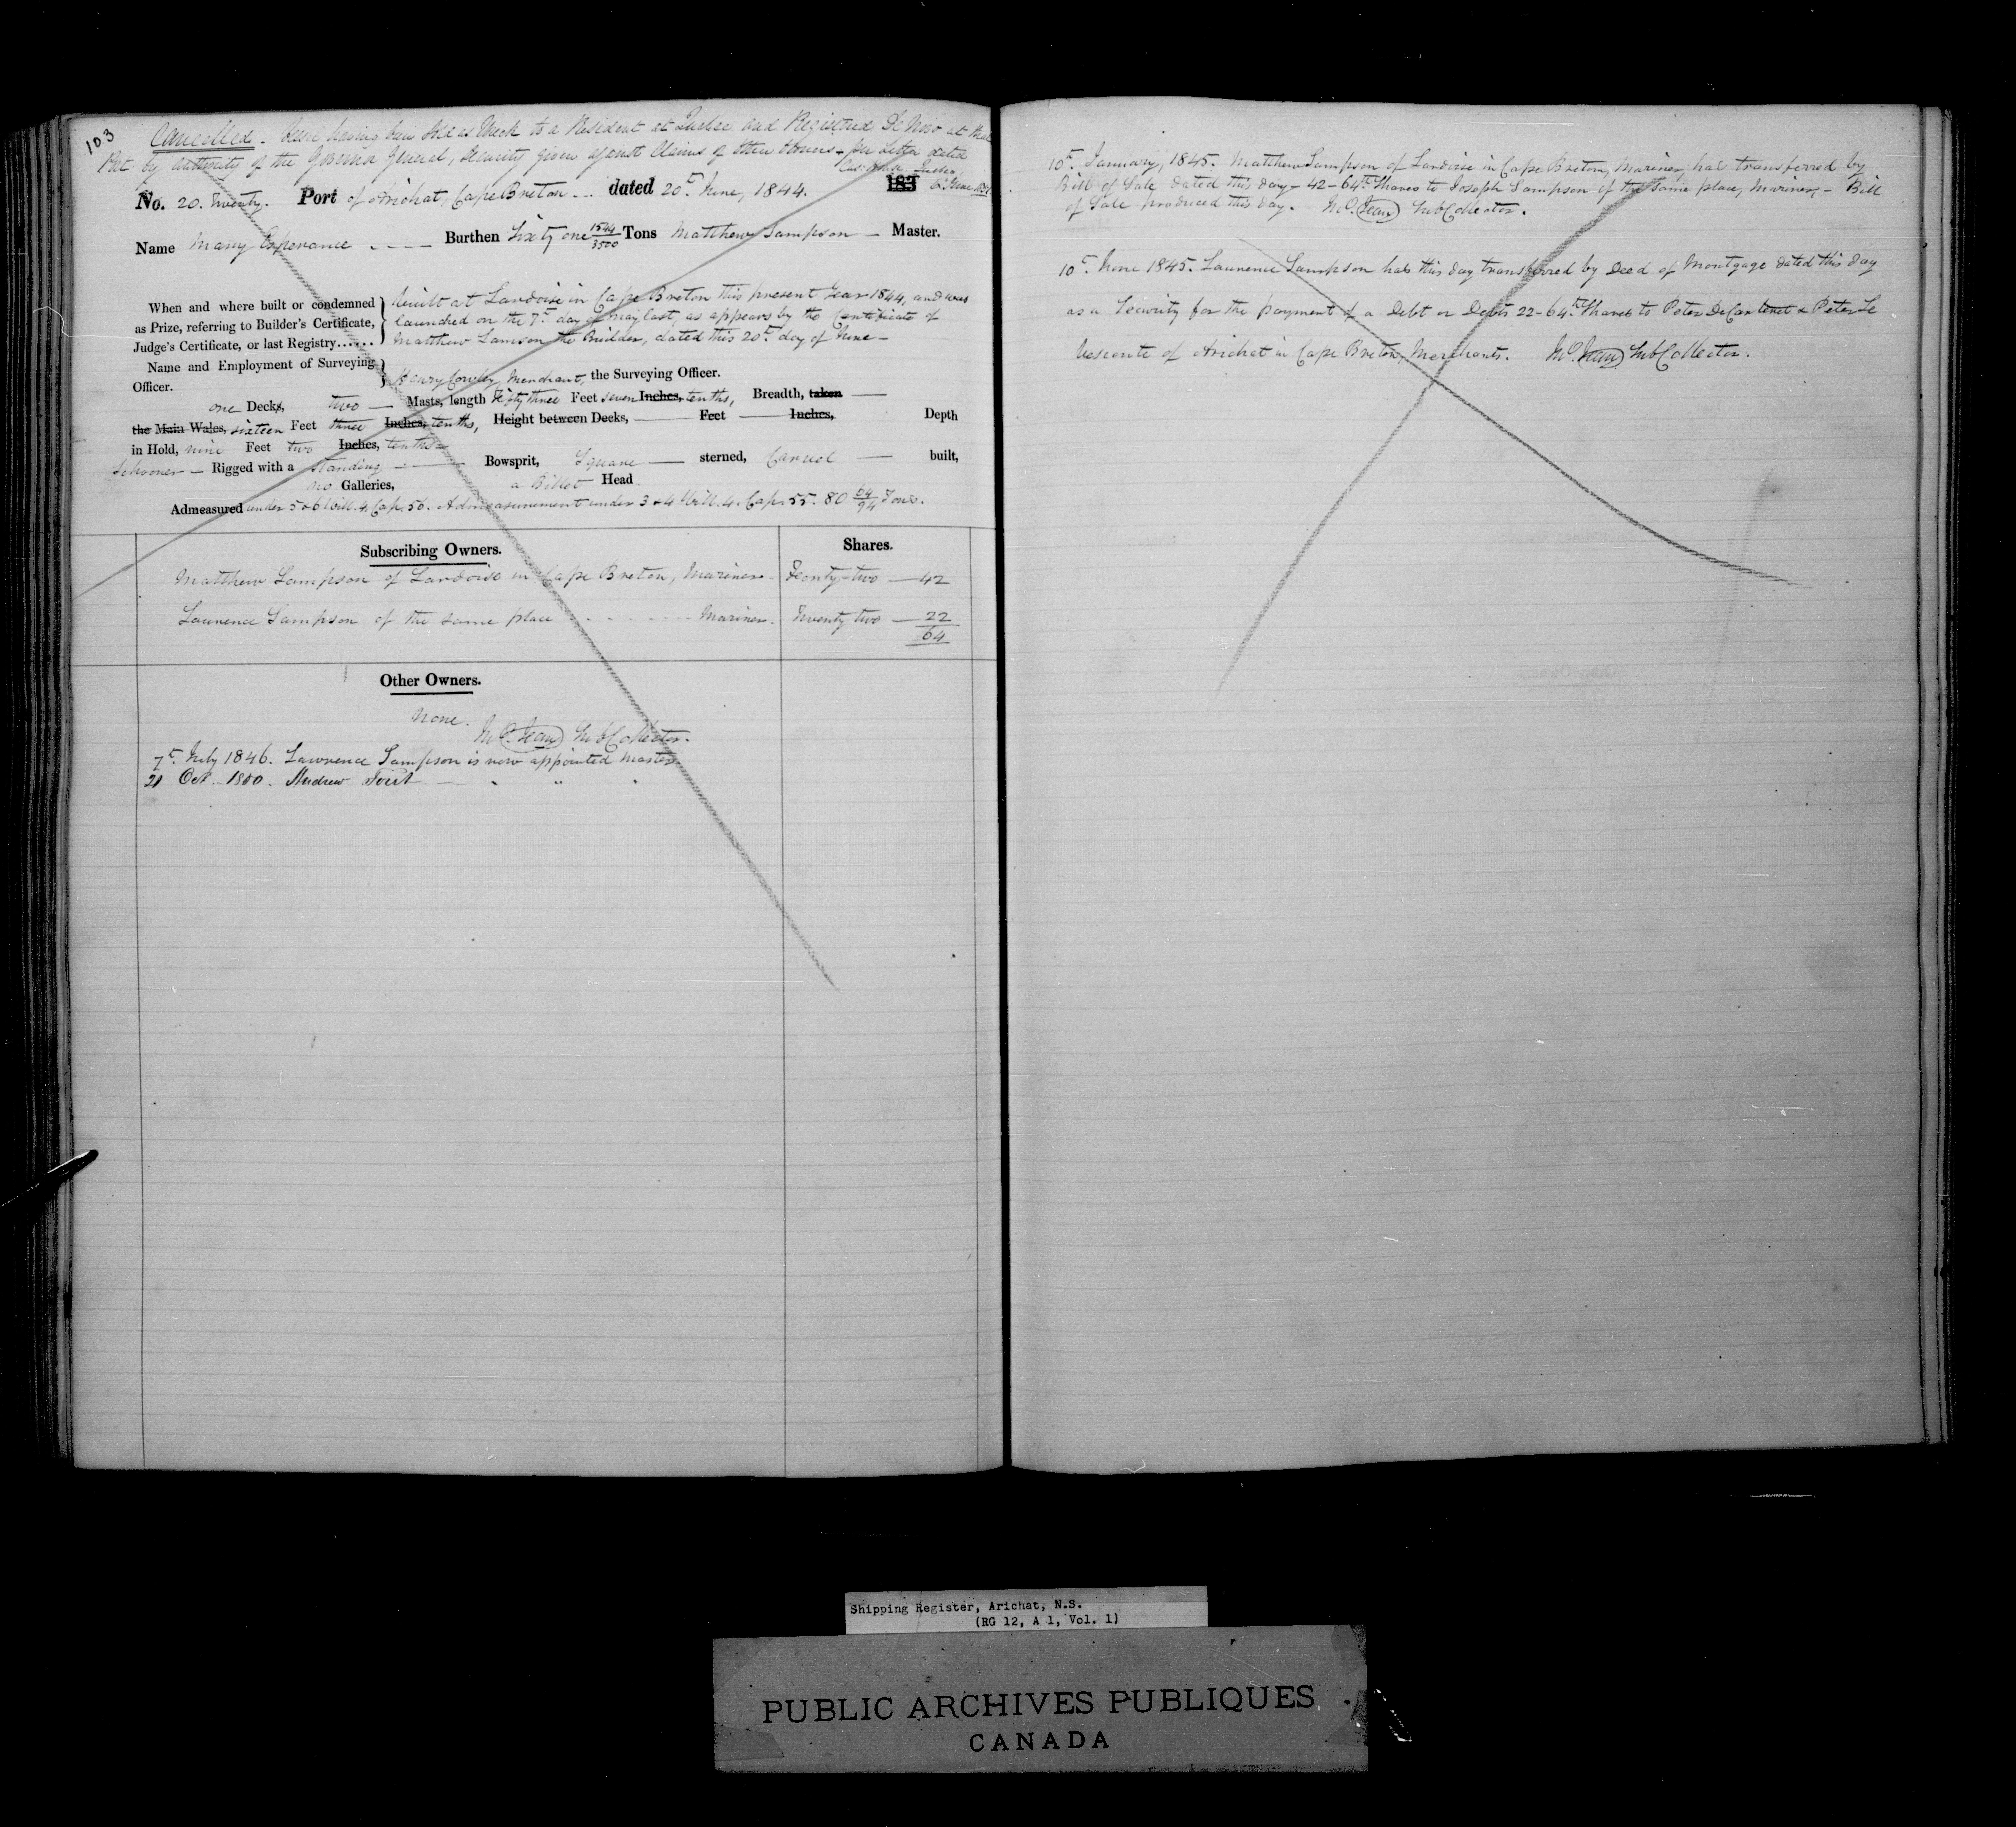 103
Cancelled. having been sold as Wreck to a Resident at Quebec and Registered De Novo at that
Port by authority of the Governor General, Security given against Claims of other Owners - per Letter dated
Quebec,
No. 20. Twenty. Port of Arichat, Cape Breton dated 20th June, 1844. 183
Name Mary Esperance Burthen Sixty one 1544/3500 Tons Matthew Sampson — Master.
When and where built or condemned
as Prize, referring to Builder's Certificate,
Judge's Certificate, or last Registry......
built at Lardoise in Cape Breton this present Year 1844, and was
launched on the 7th day of May last, as appears by the Certificate of
Matthew Samson the Builder, dated this 20th day of June —
Name and Employment of Surveying
Officer.
Henry Cowley, Merchant, the Surveying Officer.
one Decks, two — Masts, length fifty three Feet seven Inches, tenths, Breadth, taken —
the Main Wales, sixteen Feet three Inches, tenths, Height between Decks, — Feet — Inches, Depth
in Hold, nine Feet two Inches, tenths —
Schooner — Rigged with a standing — Bowsprit, Square — sterned, Carvel — built,
no Galleries, a Billet Head
Admeasured under 5 & 6 Will. 4. Cap. 56. Admeasurement under 3 & 4 Will. 4. Cap. 55. 80 64/94 Tons.
Subscribing Owners. Shares.
Matthew Sampson of Lardoise in Cape Breton, Mariner. Feorty-two — 42
Laurence Sampson of the same place Mariner. Twenty two — 22
64
Other Owners.
None.
Jean SubCollector.
7th July 1846. Lawrence Sampson is now appointed Master.
21 Oct Andrew
10th January, 1845. Matthew Sampson of Lardoise in Cape Breton, Mariner, has transferred by
Bill of Sale, dated this day — 42-64th Shares to Joseph Sampson of the same place, Mariner, — Bill
of Sale produced this day. Jean SubCollector.
10th June 1845. Laurence Sampson has this day transferred by Deed of Mortgage dated this day
as a Security for the payment of a Debt or Debts 22-64th Shares to Peter DeCarteret & Peter Le
Vesconte of Arichat in Cape Breton, Merchants. Jean SubCollector.
Shipping Register, Arichat, N.S.
(RG 12, A 1, Vol. 1)
PUBLIC ARCHIVES PUBLIQUES
CANADA